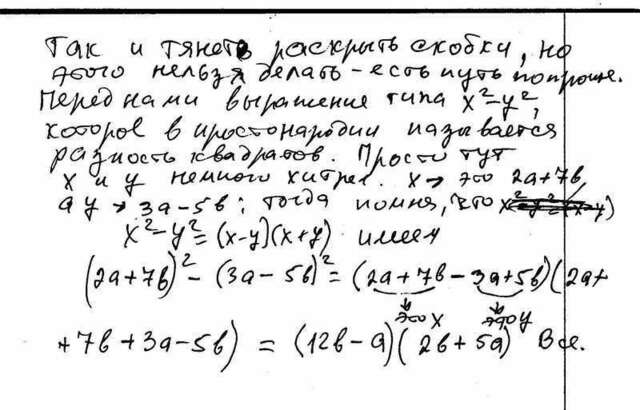 Так и тянет раскрыть скобки, но
этого нельзя делать – есть путь попроще.
Перед нами выражение типа x²–y²,
которое в простонародии называется
разность квадратов. Просто тут
x и y немного хитрее. x → это 2a+7b
а y → 3a–5b; тогда помня, что
x²–y²=(x–y)(x+y) имеем
(2a+7b)² – (3a–5b)² = (2a+7b–3a+5b)(2a+
это x это y
+7b+3a–5b) = (12b–a)(2b+5a) Все.